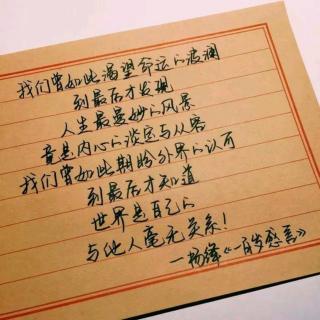 我们曾如此渴望命运的波澜
到最后才发现
人生最曼妙的风景
竟是内心的淡定与从容
我们曾如此期盼外界的认可
到最后才知道
世界是自己的
与他人毫无关系！
—杨绛《一百岁感言》